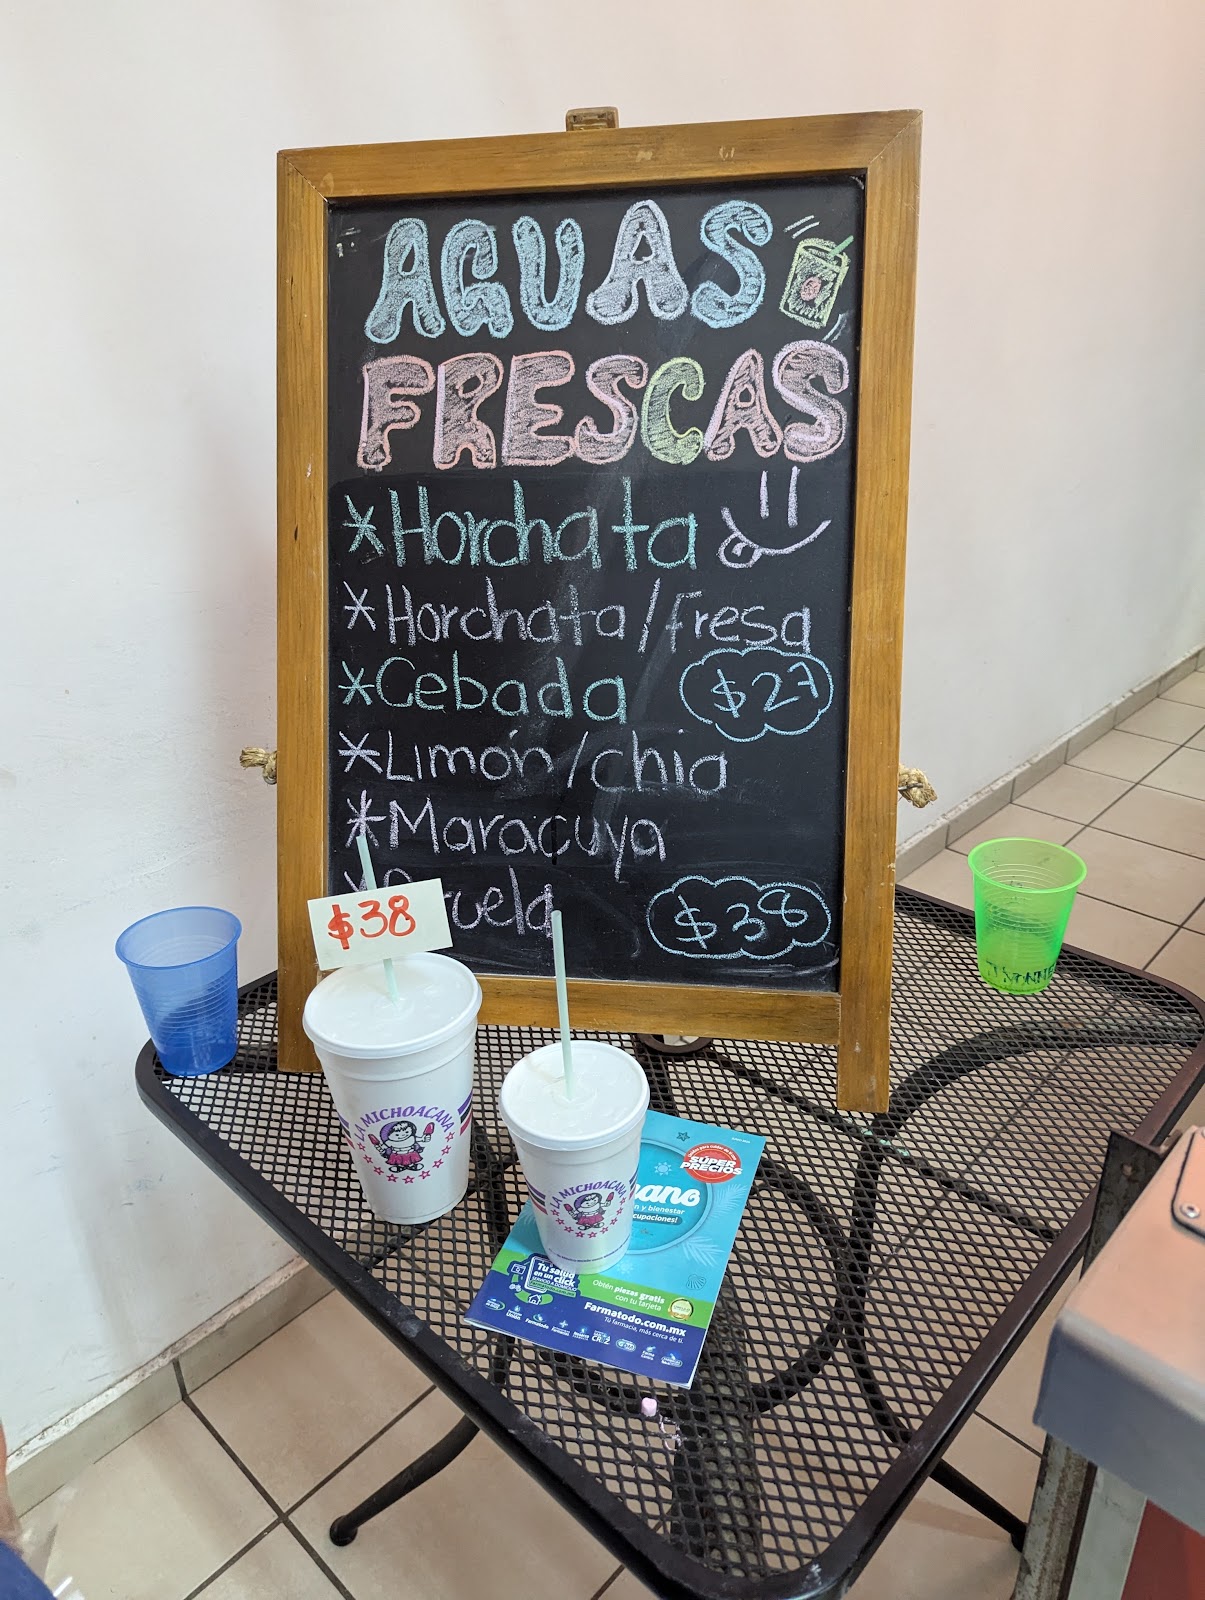 AGUAS
FRESCAS
*Horchata
*Horchata/Fresa
*Cebada
$27
*Limón/chia
*Maracuya
$38
$38
LA MICHOACANA
LA MICHOACANA
JVONNE
SÚPER
PRECIOS
n y bienestar
cupaciones!
Tu salud
en un click
Obtén piezas gratis
con tu tarjeta
Farmatodo.com.mx
Tu farmacia, más cerca de ti.